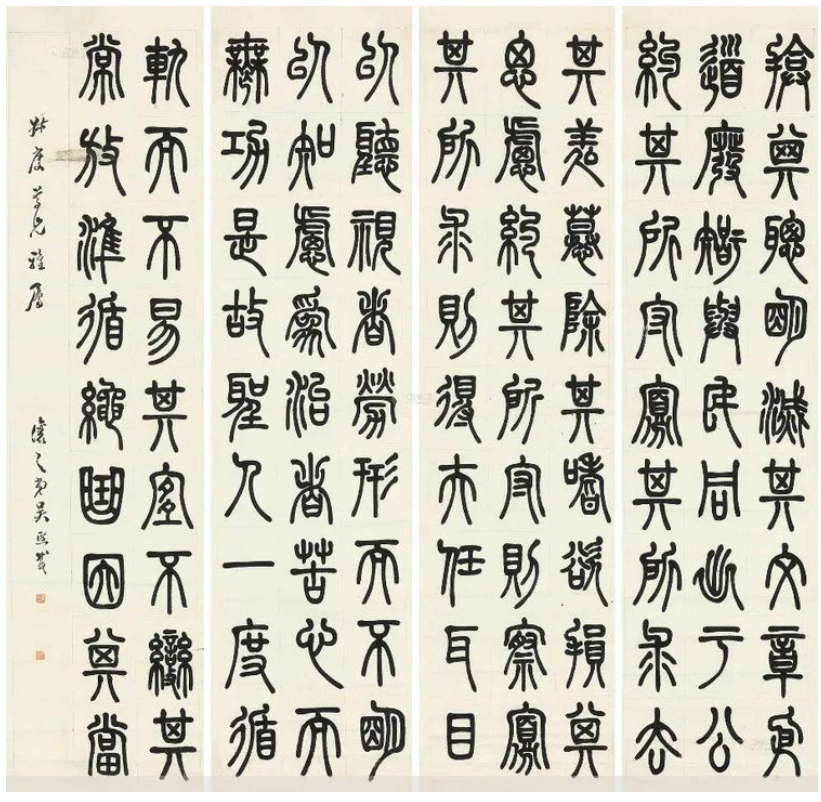 揜其聰明滅其文章依
道廢智與民同出于公
約其所守寡其所求去
其羑慕除其嗜欲損其
思慮約其所守則察寡
其所求則得夫任耳目
以聽視者勞形而不明
以知慮為治者苦心而
無功是故聖人一度循
軌而不易其宜不變其
常放準循繩曲因其當
尊兄雅屬
讓之弟吳熙載